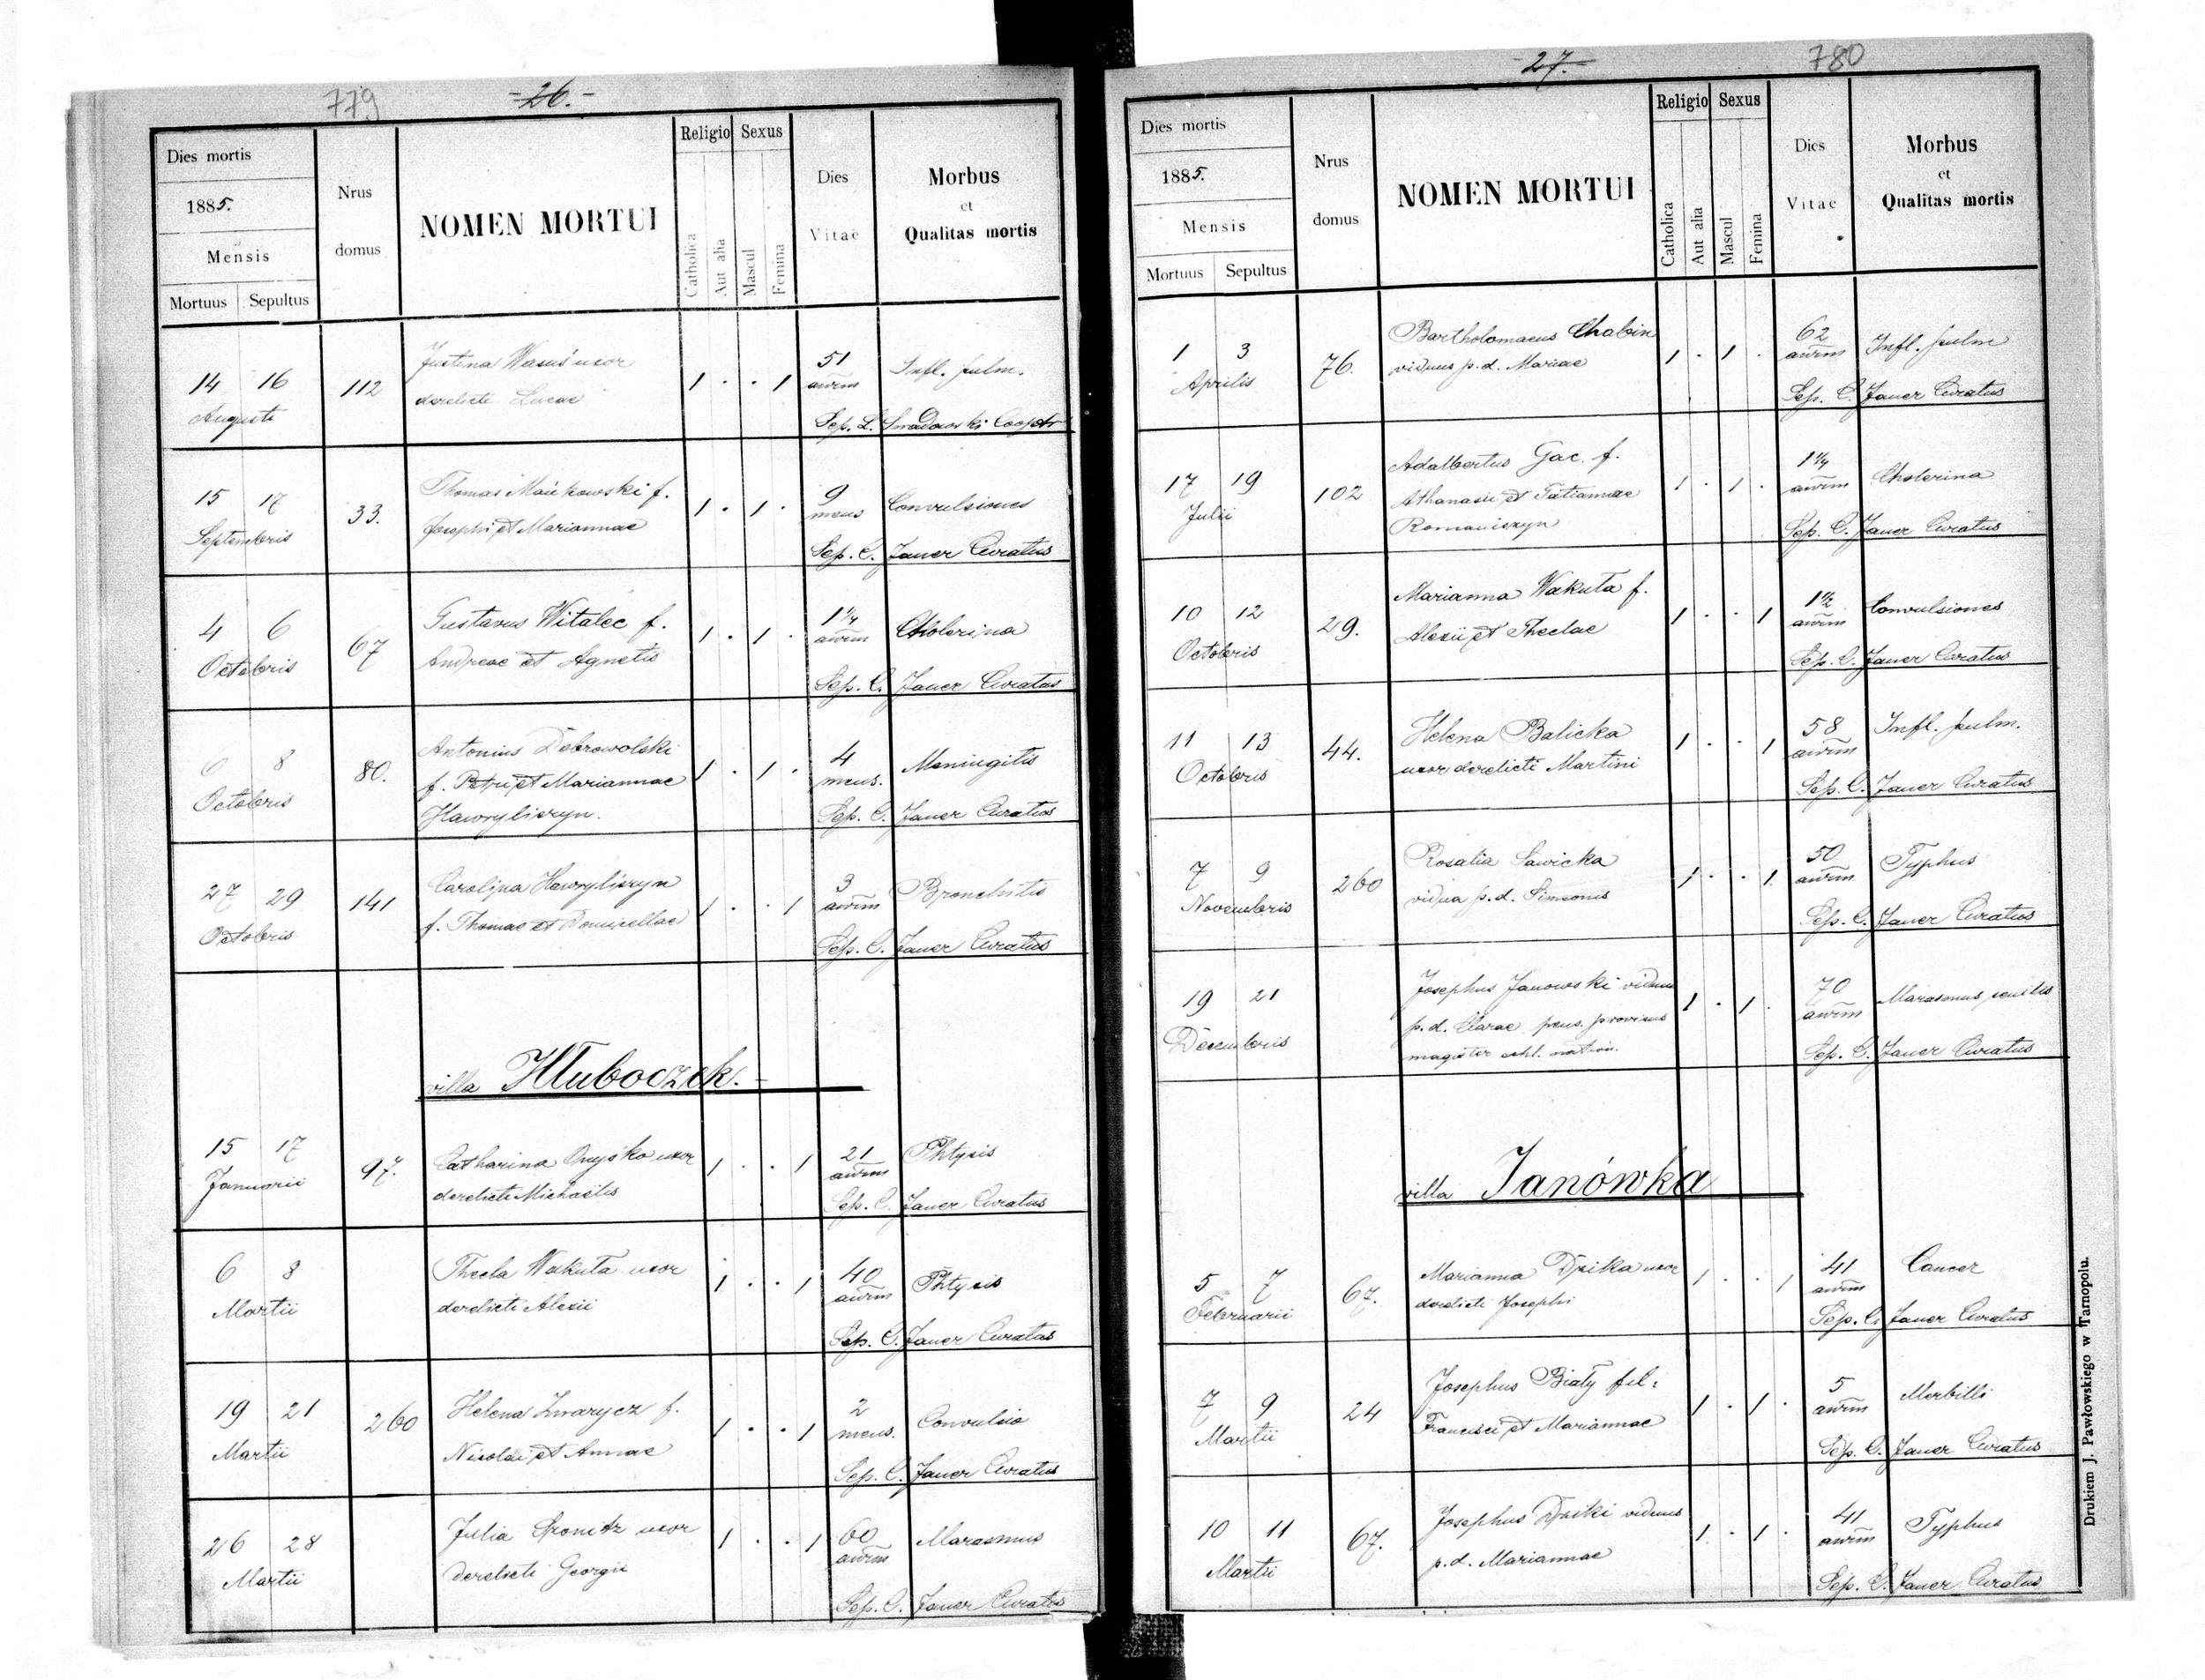 779
-26.-
Dies mortis
1885.
Mensis
Mortuus Sepultus
Nrus
domus
NOMEN MORTUI
Religio Sexus
Catholica
Aut alia
Mascul
Femina
Dies
Vitae
Morbus
et
Qualitas mortis
14 16
Augusti
112
Justina Wasuś uxor
derelicti Lucae
1 . . 1
51
annm
Infl. pulm.
Sep. L. Cooptr
15 17
Septembris
33.
Thomas Mańkowski f.
Josephi et Mariannae
1 . 1 .
9
mens
Convulsiones
Sep. C. Jauer Curatus
4 6
Octobris
67
Gustavus Witalec f.
Andreae et Agnetis
1 . 1 .
1 1/4
annm
Cholerina
Sep. C. Jauer Curatus
6 8
Octobris
80.
Antonius Dobrowolski
f. Petri et Mariannae
Hawryliszyn.
1 . 1 .
4
mens.
Meningitis
Sep. C. Jauer Curatus
27 29
Octobris
141
Carolina Hawryliszyn
f. Thomae et Domicellae
1 . . 1
3
annm
Bronchitis
Sep. C. Jauer Curatus
villa Hłuboczek.
15 17
Januarii
97.
Catharina Onyśko uxor
derelicti Michaëlis
1 . . 1
21
annm
Phtysis
Sep. C. Jauer Curatus
6 8
Martii
Thecla Wakuta uxor
derelicti Alexii
1 . . 1
40
annm
Phtysis
Sep. C. Jauer Curatus
19 21
Martii
260
Helena Zwarycz f.
Nicolai et Annae
1 . . 1
2
mens.
Convulsio
Sep. C. Jauer Curatus
26 28
Martii
Julia uxor
derelicti Georgii
1 . . 1
60
annm
Marasmus
Sep. C. Jauer Curatus
27.-
780
Dies mortis
1885.
Mensis
Mortuus Sepultus
Nrus
domus
NOMEN MORTUI
Religio Sexus
Catholica
Aut alia
Mascul
Femina
Dies
Vitae
Morbus
et
Qualitas mortis
1 3
Aprilis
76.
Bartholomaeus Chabin
viduus p. d. Mariae
1 . 1 .
62
annm
Infl. pulm
Sep. C. Jauer Curatus
17 19
Julii
102
Adalbertus Gac. f.
Athanasii et Tatiannae
Romaniszyn
1 . 1 .
1 1/4
annm
Cholerina
Sep. C. Jauer Curatus
10 12
Octobris
29.
Marianna Wakuta f.
Alexii et Theclae
1 . . 1
1 1/2
annm
Convulsiones
Sep. C. Jauer Curatus
11 13
Octobris
44.
Helena Balicka
uxor derelicti Martini
1 . . 1
58
annm
Infl. pulm.
Sep. C. Jauer Curatus
7 9
Novembris
260
Rosalia Sawicka
vidua p. d. Simeonis
1 . . 1.
50
annm
Typhus
Sep. C. Jauer Curatus
19 21
Decembris
Josephus Janowski viduus
p. d. Clarae pens.
magister
1 . 1 .
70
annm
Marasmus senilis
Sep. C. Jauer Curatus
villa Janówka
5 7
Februarii
67.
Marianna Dzika uxor
derelicti Josephi
1 . . 1
41
annm
Cancer
Sep. C. Jauer Curatus
7 9
Martii
24
Josephus Biały fil:
Francisci et Mariannae
1 . 1 .
5
annm
Morbilli
Sep. C. Jauer Curatus
10 11
Martii
67.
Josephus Dziki viduus
p. d. Mariannae
1 . 1 .
41
annm
Typhus
Sep. C. Jauer Curatus
Drukiem J. Pawłowskiego w Tarnopolu.